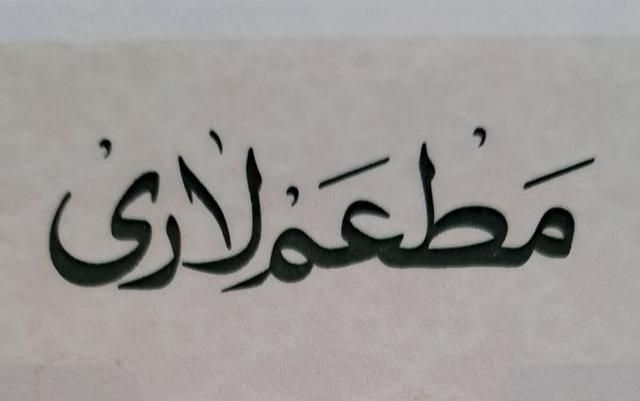 مَطْعَمْ لارى